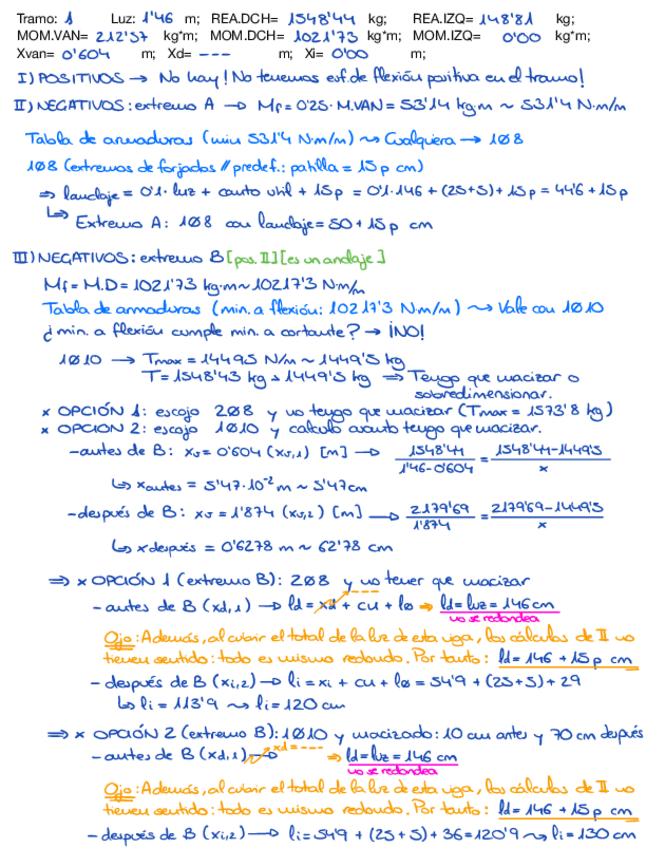 Tramo: 1 Luz: 1'46 m; REA.DCH= 1548'44 kg; REA.IZQ= 148'81 kg;
MOM.VAN= 212'57 kg*m; MOM.DCH= 1021'73 kg*m; MOM.IZQ= 0'00 kg*m;
Xvan= 0'604 m; Xd= --- m; Xi= 0'00 m;
I) POSITIVOS → No hay! No tenemos esf. de flexión positiva en el tramo!
II) NEGATIVOS: extremo A → Mf = 0'25 · M.VAN = 53'14 kg·m ~ 531'4 N·m/m
Tabla de armaduras (min 531'4 N·m/m) ~> Cualquiera → 1Ø8
1Ø8 (extremos de forjados // predef.: patilla = 15p cm)
⇒ landaje = 0'1 · luz + canto útil + 15p = 0'1·146 + (25+5) + 15p = 44'6 + 15p
↳ Extremo A: 1Ø8 con landaje = 50 + 15p cm
III) NEGATIVOS: extremo B [pos. II] [es un anclaje]
Mf = M.D = 1021'73 kg·m ~ 10217'3 N·m/m
Tabla de armaduras (min. a flexión: 10217'3 N·m/m) ~> Vale con 1Ø10
¿min. a flexión cumple min. a cortante? → ¡NO!
1Ø10 → Tmax = 14495 N/m ~ 1449'5 kg
T = 1548'43 kg > 1449'5 kg ⇒ Tengo que macizar o
sobredimensionar.
× OPCIÓN 1: escojo 2Ø8 y no tengo que macizar (Tmax = 1573'8 kg)
× OPCION 2: escojo 1Ø10 y calculo cuanto tengo que macizar.
- antes de B: xv = 0'604 (xv,1) [m] → 1548'44 / 1'46-0'604 = 1548'44-1449'5 / x
↳ x antes = 5'47·10⁻² m ~ 5'47 cm
- después de B: xv = 1'874 (xv,2) [m] → 2179'69 / 1'874 = 2179'69-1449'5 / x
↳ x después = 0'6278 m ~ 62'78 cm
⇒ × OPCIÓN 1 (extremo B): 2Ø8 y no tener que macizar
- antes de B (xd,1) → ld = xd + cu + lø ⇒ ld = luz = 146 cm
no se redondea
Ojo: Además, al cubrir el total de la luz de esta viga, los cálculos de II no
tienen sentido: todo es mismo redondo. Por tanto: ld = 146 + 15p cm
- después de B (xi,2) → li = xi + cu + lø = 54'9 + (25+5) + 29
↳ li = 113'9 ~> li = 120 cm
⇒ × OPCIÓN 2 (extremo B): 1Ø10 y macizado: 10 cm antes y 70 cm después
- antes de B (xd,1) → xd = --- ⇒ ld = luz = 146 cm
no se redondea
Ojo: Además, al cubrir el total de la luz de esta viga, los cálculos de II no
tienen sentido: todo es mismo redondo. Por tanto: ld = 146 + 15p cm
- después de B (xi,2) → li = 54'9 + (25+5) + 36 = 120'9 ~> li = 130 cm